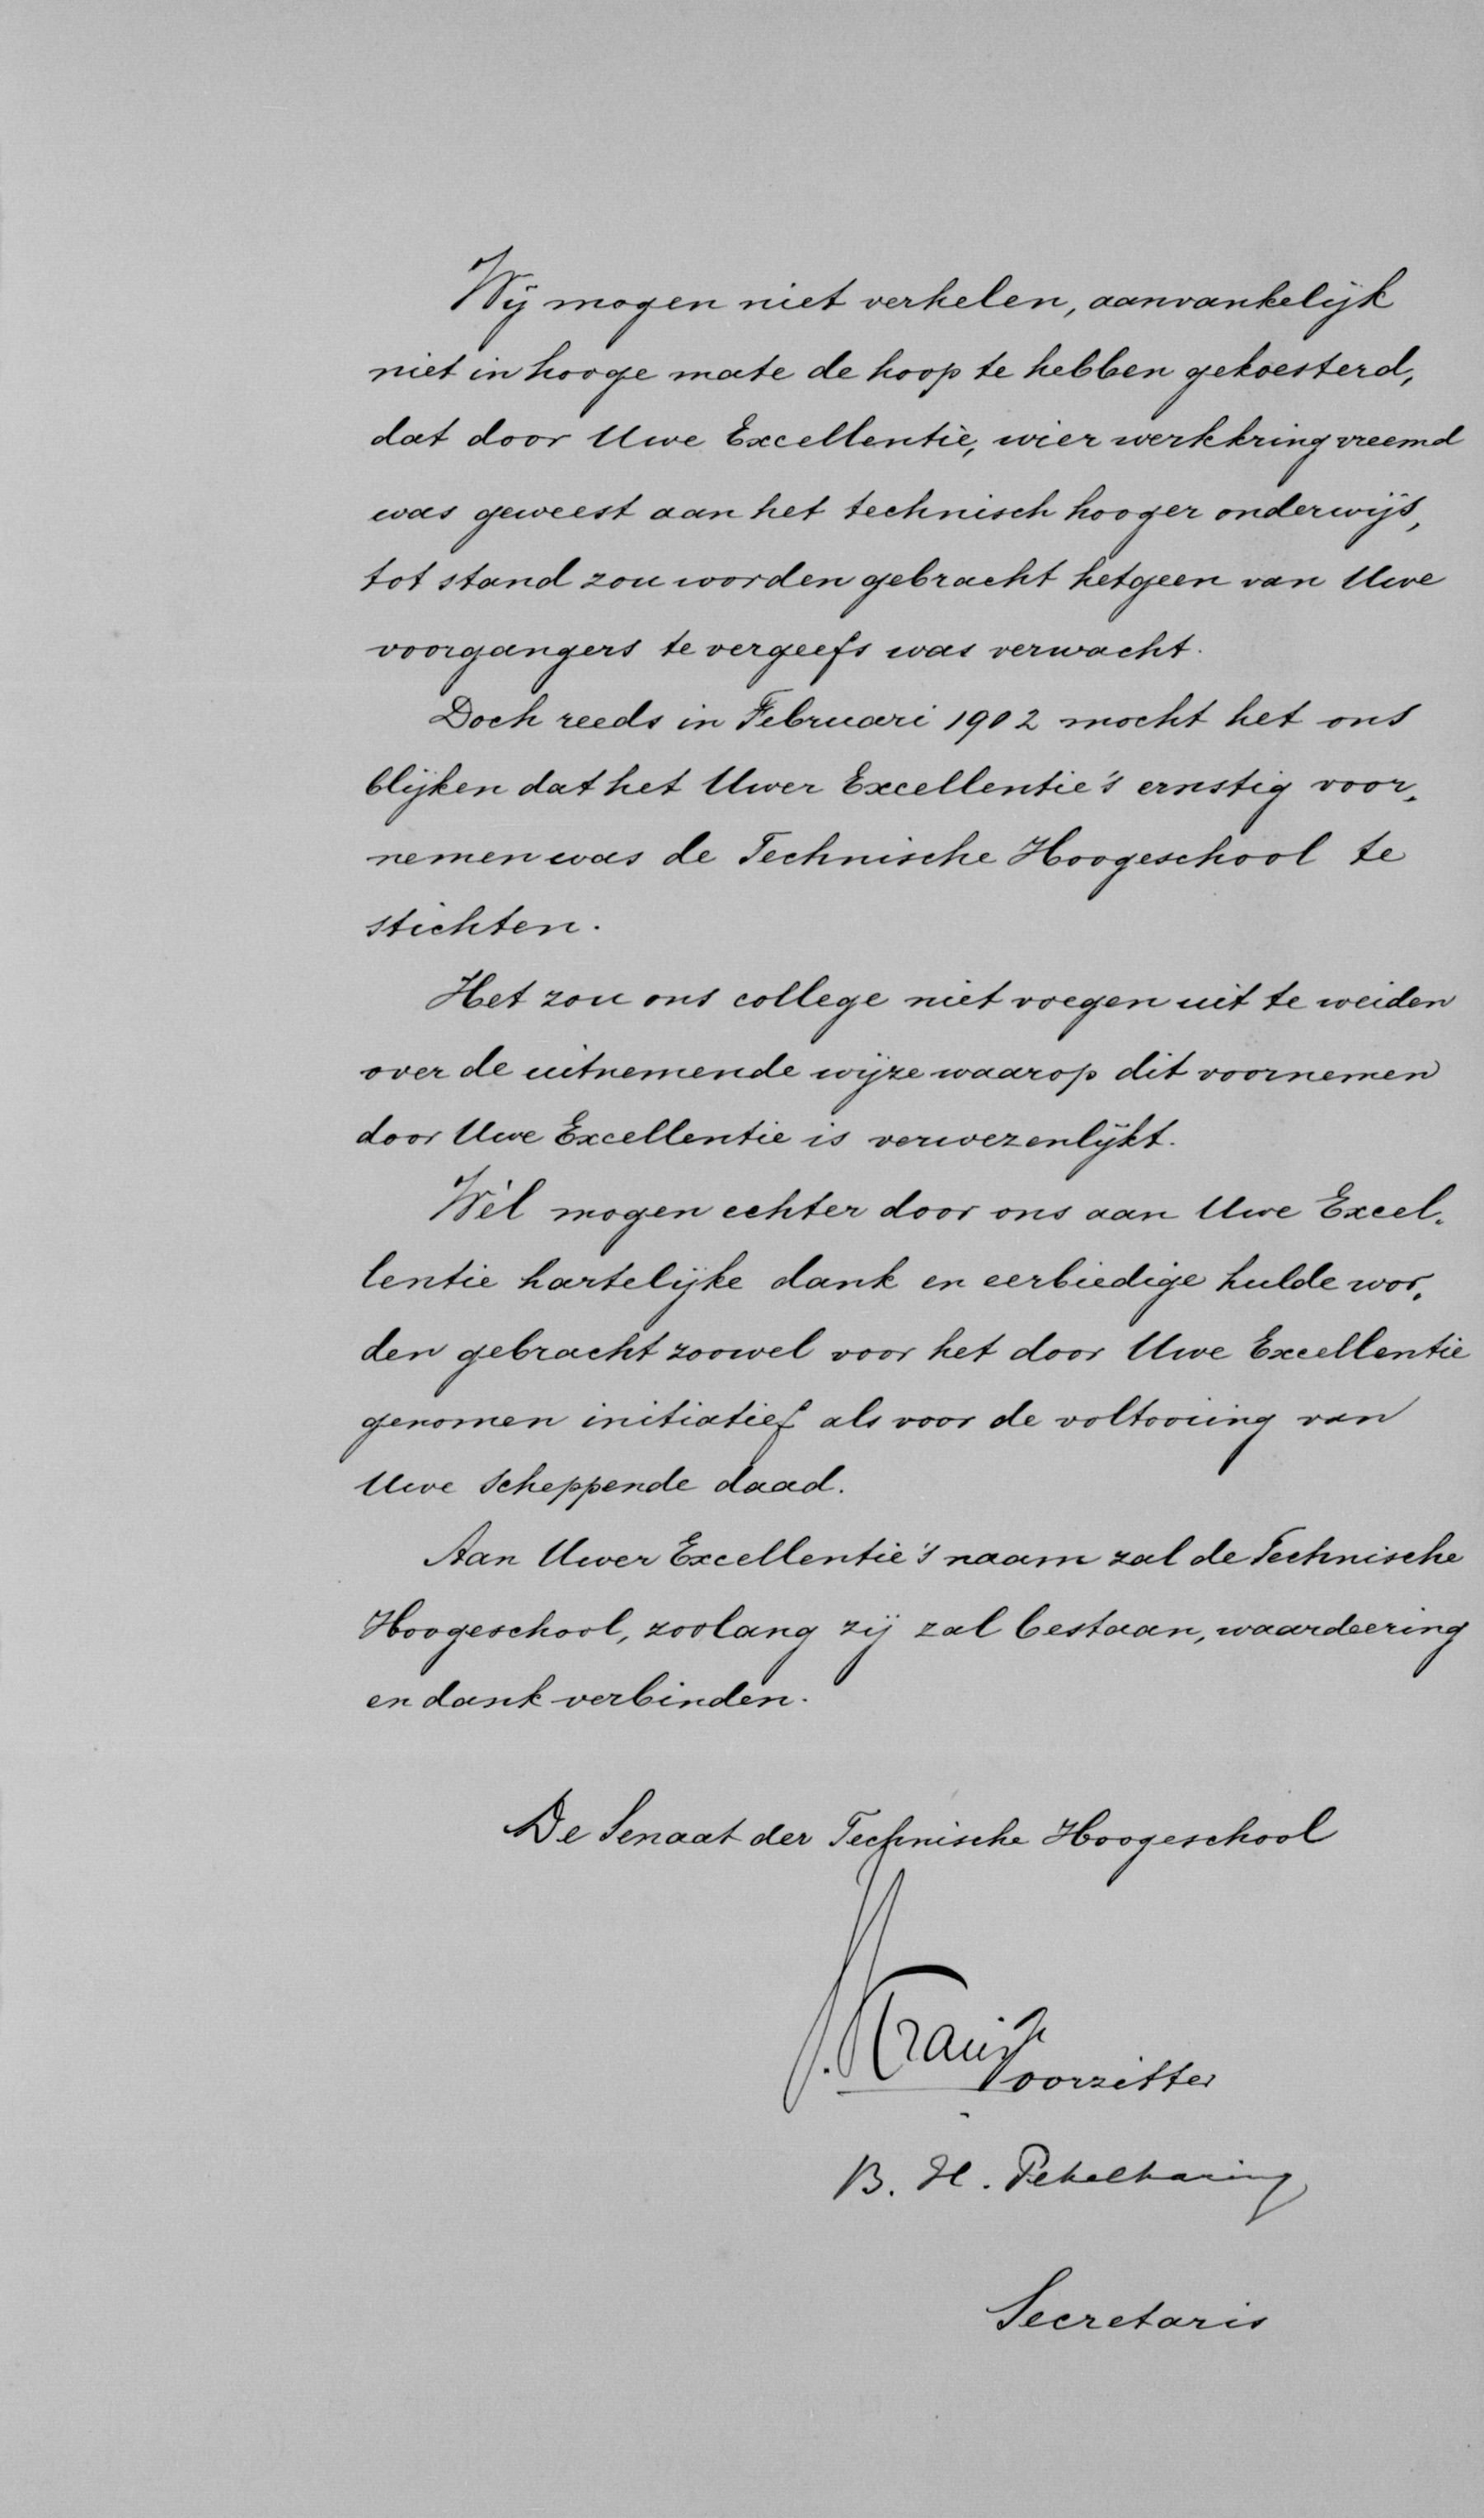 Wij mogen niet verhelen, aanvankelijk
niet in hooge mate de hoop te hebben gekoesterd,
dat door Uwe Excellentie, wier werkkring vreemd
was geweest aan het technisch hooger onderwijs,
tot stand zou worden gebracht hetgeen van Uwe
voorgangers te vergeefs was verwacht.
Doch reeds in Februari 1902 mocht het ons
blijken dat het Uwer Excellentie's ernstig voor-
nemen was de Technische Hoogeschool te
stichten.
Het zou ons college niet voegen uit te weiden
over de uitnemende wijze waarop dit voornemen
door Uwe Excellentie is verwezenlijkt.
Wèl mogen echter door ons aan Uwe Excel-
lentie hartelijke dank en eerbiedige hulde wor-
den gebracht zoowel voor het door Uwe Excellentie
genomen initiatief als voor de voltooiing van
Uwe scheppende daad.
Aan Uwer Excellentie's naam zal de Technische
Hoogeschool, zoolang zij zal bestaan, waardeering
en dank verbinden.
De Senaat der Technische Hoogeschool
J. Kraus
Voorzitter
B. H. Pekelharing
Secretaris